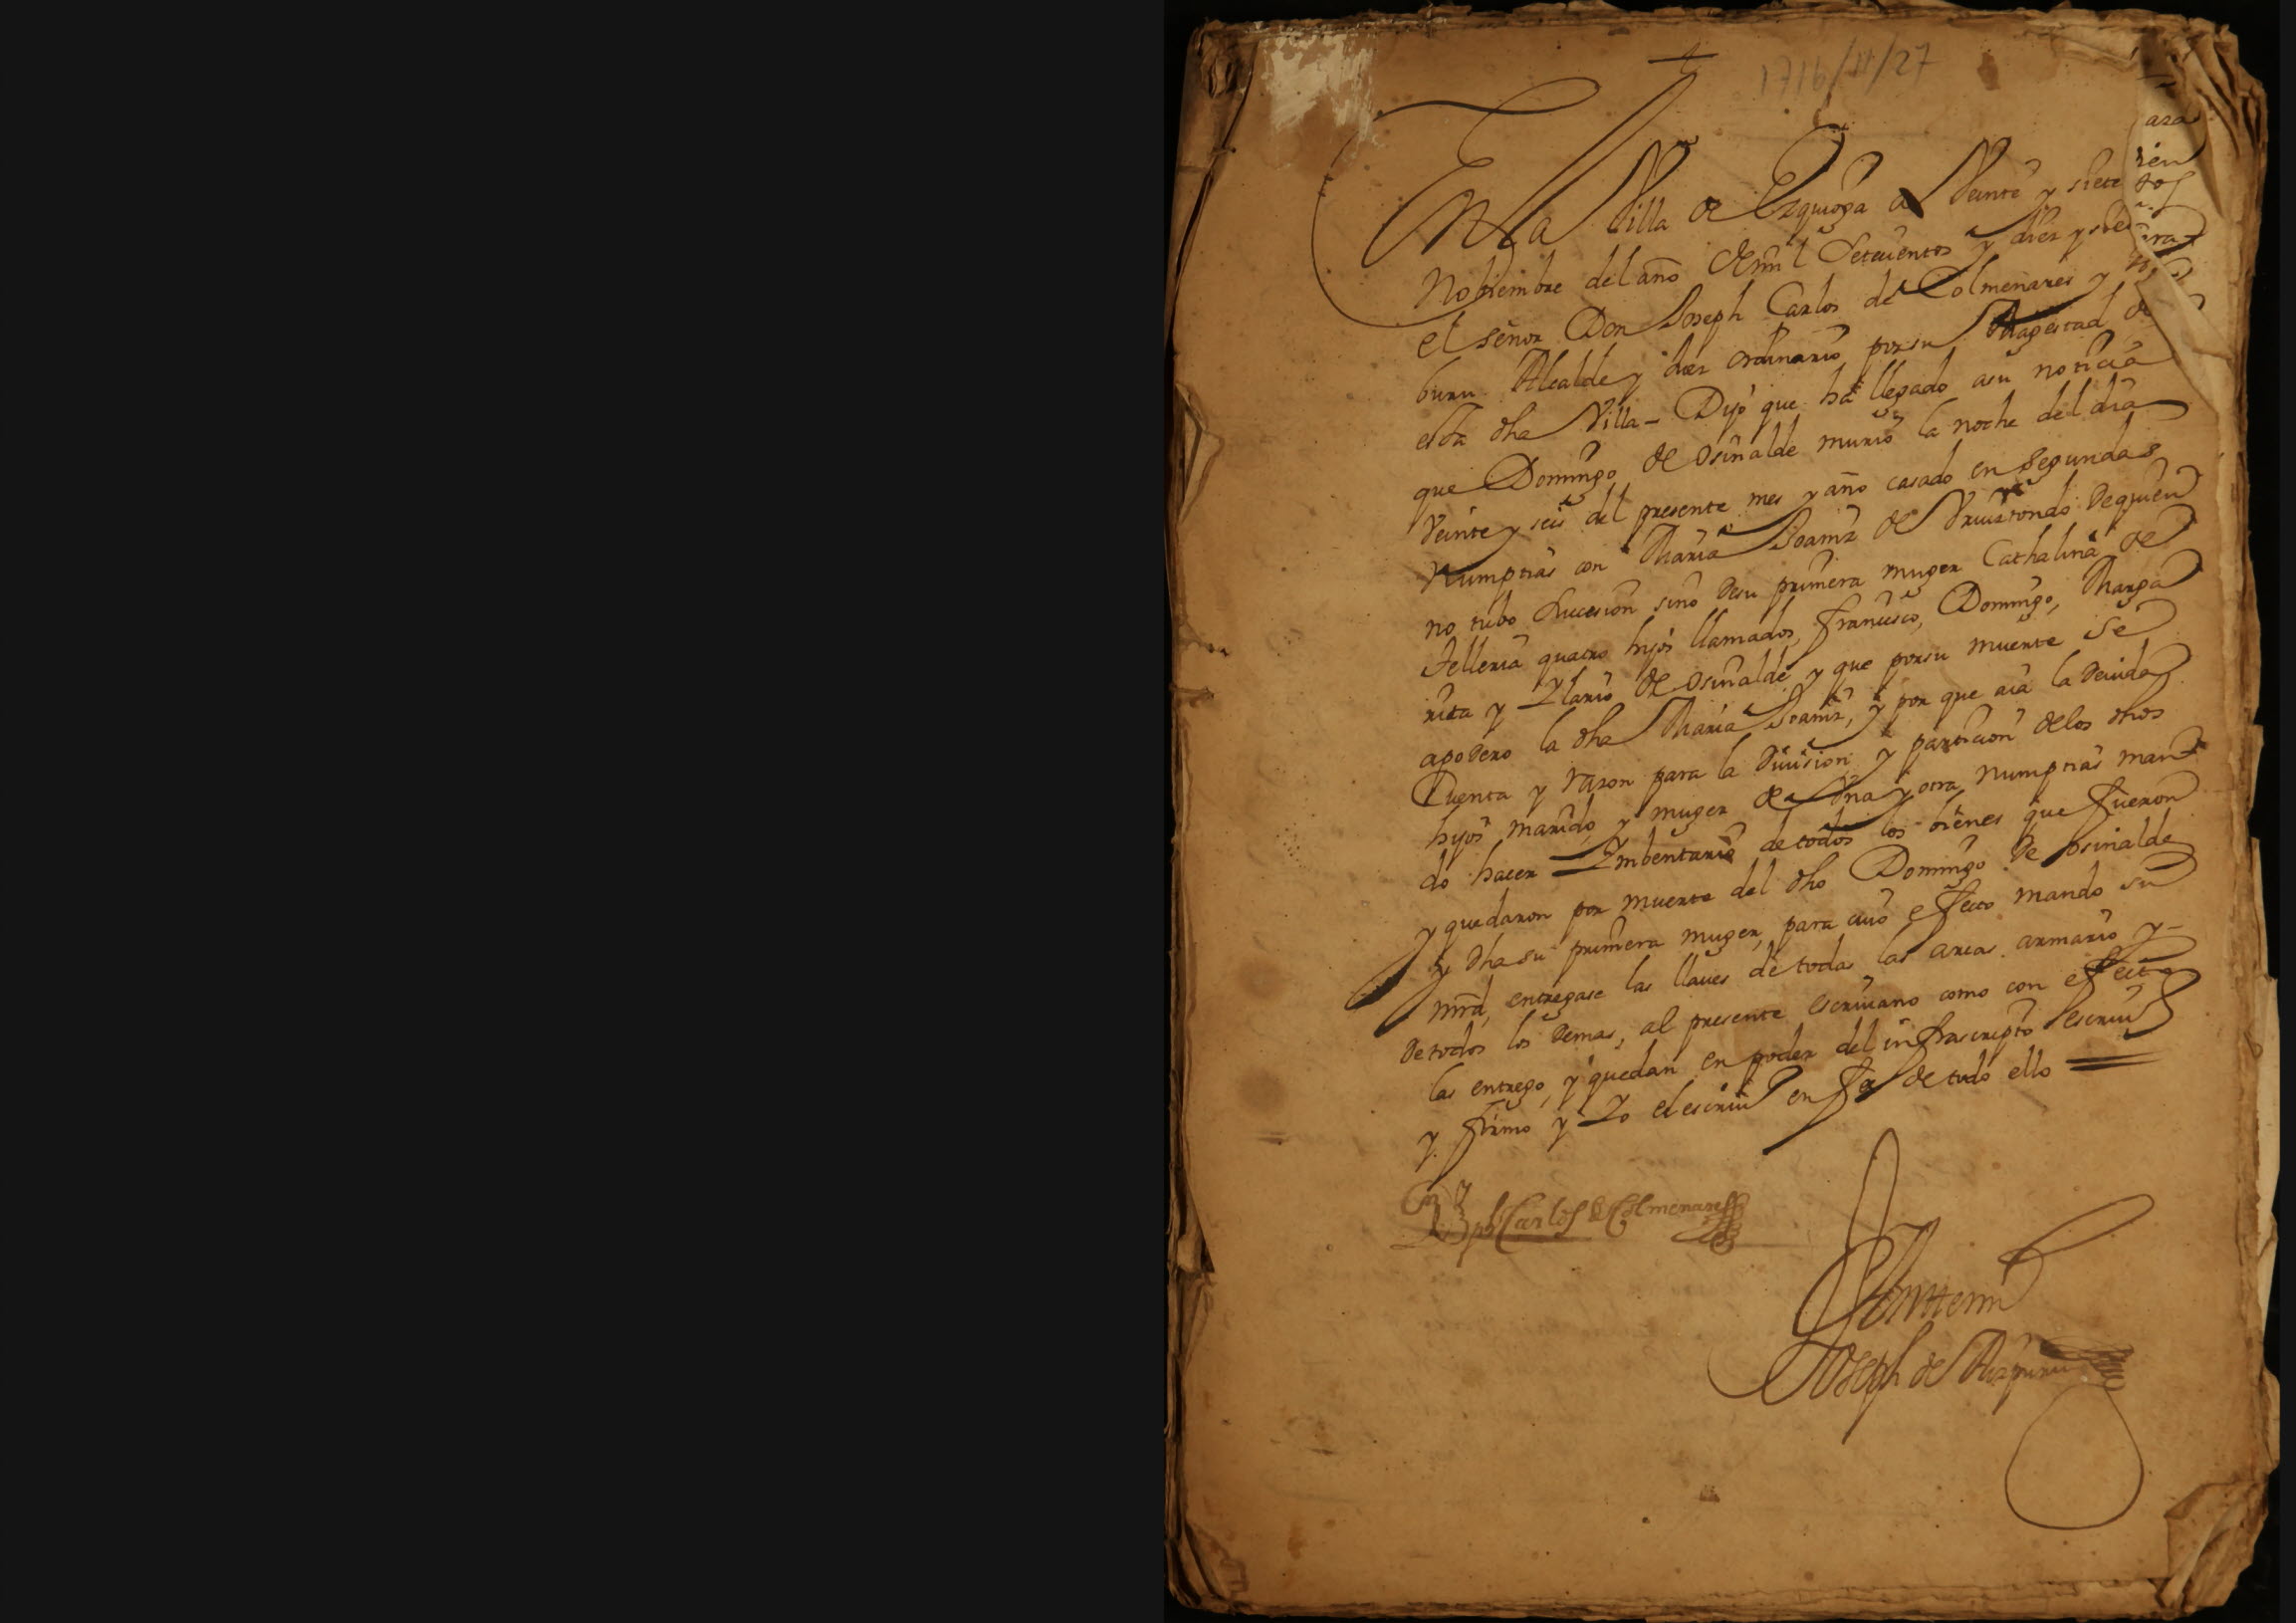 1716/11/27
En la Villa de Ezquioga a Veinte y siete
Nobiembre del año de mil Setecientos y diez y
el señor Don Joseph Carlos de Colmenares y
buru Alcalde y Juez ordinario por su Magestad de
esta dha Villa - Dijo que ha llegado a su noticia
que Domingo de Osinalde murio la noche del dia
Veinte y seis del presente mes y año casado en segundas
Numptias con Maria Joaniz de Vruiztondo de quien
no tubo Sucesion sino de su primera muger Cathalina de
Telleria quatro hijos llamados, Francisco, Domingo, Marga
rita y Ylario de Osinalde y que por su muerte se
apodero la dha Maria Joaniz, y por que aia la deuida
Cuenta y razon para la Diuision y particion de los dhos
hijos marido, y muger de Vna y otra numptias man
do hacer Ymbentario de todos los bienes que fueron
y quedaron por muerte del dho Domingo de Osinalde
y dha su primera muger, para cuio efecto mando su
mrd, entregase las llaues de todas las arcas armario y -
de todos los demas, al presente escriuano como con efecto
las entrego, y quedan en poder del infrascripto escriu
y firmo y Yo el escriu en fee de todo ello =
Dn Jph Carlos de Colmenares
Ante mi
Joseph de Aizpuru